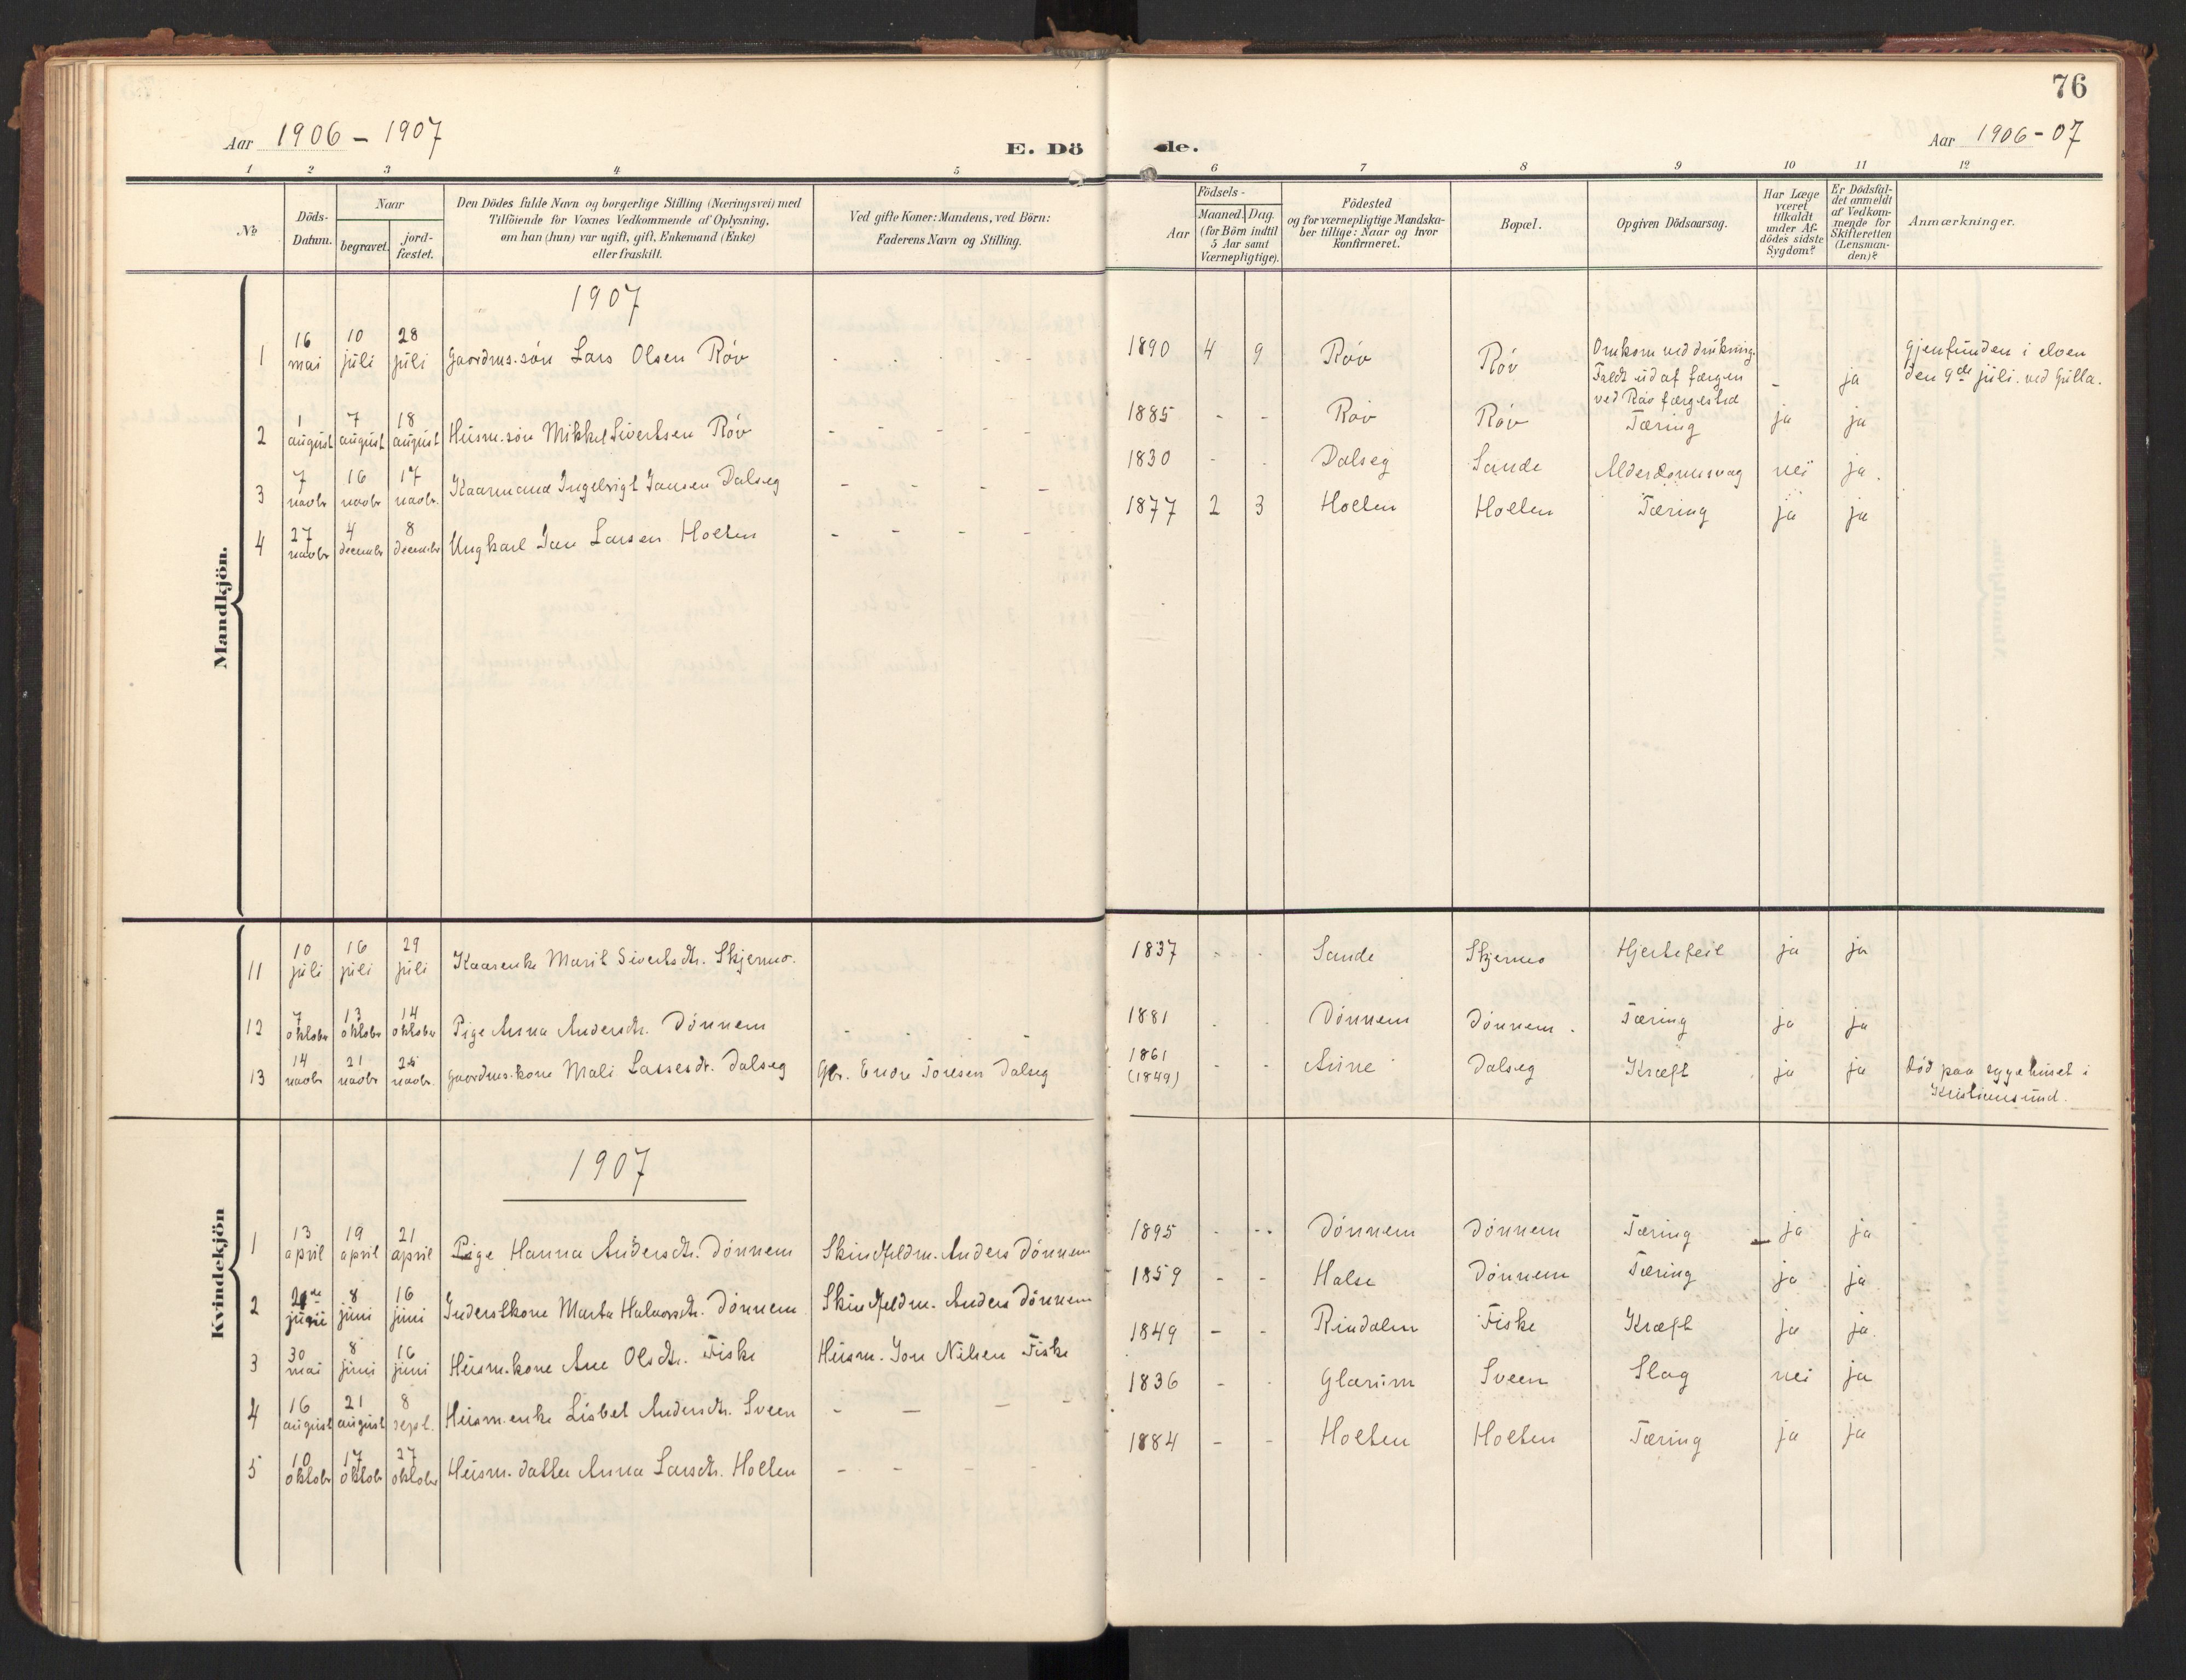 76
Aar 1906 - 1907
E. Dö de.
Aar 1906-07
1 2 3 4 5 6 7 8 9 10 11 12
No
Döds-Datum.
Naar
begravet.
jord-fæstet.
Den Dödes fulde Navn og borgerlige Stilling (Næringsvei) med
Tilföiende for Voxnes Vedkommende af Oplysning,
om han (hun) var ugift, gift, Enkemand (Enke)
eller fraskilt.
Ved gifte Koner: Mandens, ved Börn:
Faderens Navn og Stilling.
Födsels-
Aar
Maaned. Dag.
(for Börn indtil
5 Aar samt
Værnepligtige).
Födested
og for værnepligtige Mandska-
ber tillige: Naar og hvor
Konfirmeret.
Bopæl.
Opgiven Dödsaarsag.
Har Læge
været
tilkaldt
under Af-
dödes sidste
Sygdom?
Er Dödsfal-
det anmeldt
af Vedkom-
mende for
Skifteretten
(Lensman-
den)?
Anmærkninger.
Mandkjön.
1907
1 16 mai 10 juli 28 juli Gaardms. sön Lars Olsen Röv - - - - - 1890 4 9 Röv Röv Omkom ved drukning. Faldt ud af færgen ved Röv færgested - ja Gjenfunden i elven den 9de juli. ved Gulla.
2 1 august 7 august 18 august Husm. sön Mikkel Sivertsen Röv - - - - - 1885 - - Röv Röv Tæring ja ja
3 7 novbr 16 novbr 17 novbr. Kaarmand Ingebrigt Jansen Dalseg - - - - 1830 - - Dalseg Sande Alderdomssvag nei ja.
4 27 novbr 4 decembr 8 decembr Ungkarl Jan Larsen Holten - - - - - 1877 2 3 Holten Holten Tæring ja ja
Kvindekjön
11 10 juli 16 juli 29 juli Kaarenke Marit Sivertsdtr. Skjermo. 1837 - - Sande Skjermo Hjertefeil ja ja
12 7 oktober 13 oktobr 14 oktober Pige Anna Andersdtr. Dönnem - - - 1881 - - Dönnem Dönnem. Tæring ja ja
13 14 novbr 21 novbr 25 novbr. Gaardms. kone Mali Larsesdtr. Dalseg Gbr. Endre Toresen Dalseg 1861 (1849) - - Aune Dalseg Kræft ja ja död paa sygehuset i Kristiansund.
1907
1 13 april 19 april 21 april Pige Hanna Andersdtr. Dönnem Skindfeldm. Anders Dönnem 1895 - -- Dönnem Dönnem Tæring ja ja
2 juni 8 juni 16 juni Inderstkone Marta Halvorsdtr. Dönnem Skindfeldm. Anders Dönnem 1859 - - Halse Dönnem Tæring ja ja
3 30 mai 8 juni 16 juni Husm. kone Ane Olsdtr. Fiske Husm. Jon Nilsen Fiske 1849 - - Rindalen Fiske Kræft ja ja.
4 16 august 21 august 8 sept. Husm. enke Lisbet Andersdtr. Sveen - - - - 1836 - - Glærum Sveen Slag nei ja
5 10 oktobr 17 oktobr 27 oktober Husm. datter Anna Larsdtr. Holten - - - - 1884 - - Holten Holten Tæring ja ja